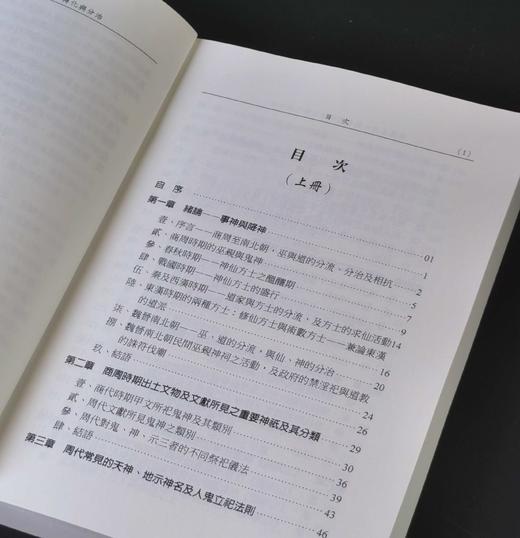 化與分治
目　次
(1)
目　次
（上冊）
自　序 01
第一章　緒論——事神與降神 1
壹、序言——商周至南北朝，巫與道的分流、分治及相抗 2
貳、商周時期的巫覡與鬼神 5
參、春秋時期——神仙方士之醞釀期 7
肆、戰國時期——神仙方士的盛行 9
伍、秦及西漢時期——道家與方士的分流、及方士的求仙活動14
陸、東漢時期的兩種方士：修仙方士與術數方士——兼論東漢
的道派 16
柒、魏晉南北朝——巫、道的分流，與仙、神的分治 20
捌、魏晉南北朝民間巫覡神祠之活動，及政府的禁淫祀與道教
的誅符伐廟 24
玖、結語 26
第二章　商周時期出土文物及文獻所見之重要神祇及其分類 29
壹、商代時期甲文所祀鬼神及其類別 30
貳、周代文獻所見鬼神之類別 36
參、周代對鬼、神、示三者的不同祭祀儀法 39
肆、結語 43
第三章　周代常見的天神、地示神名及人鬼立祀法則 46